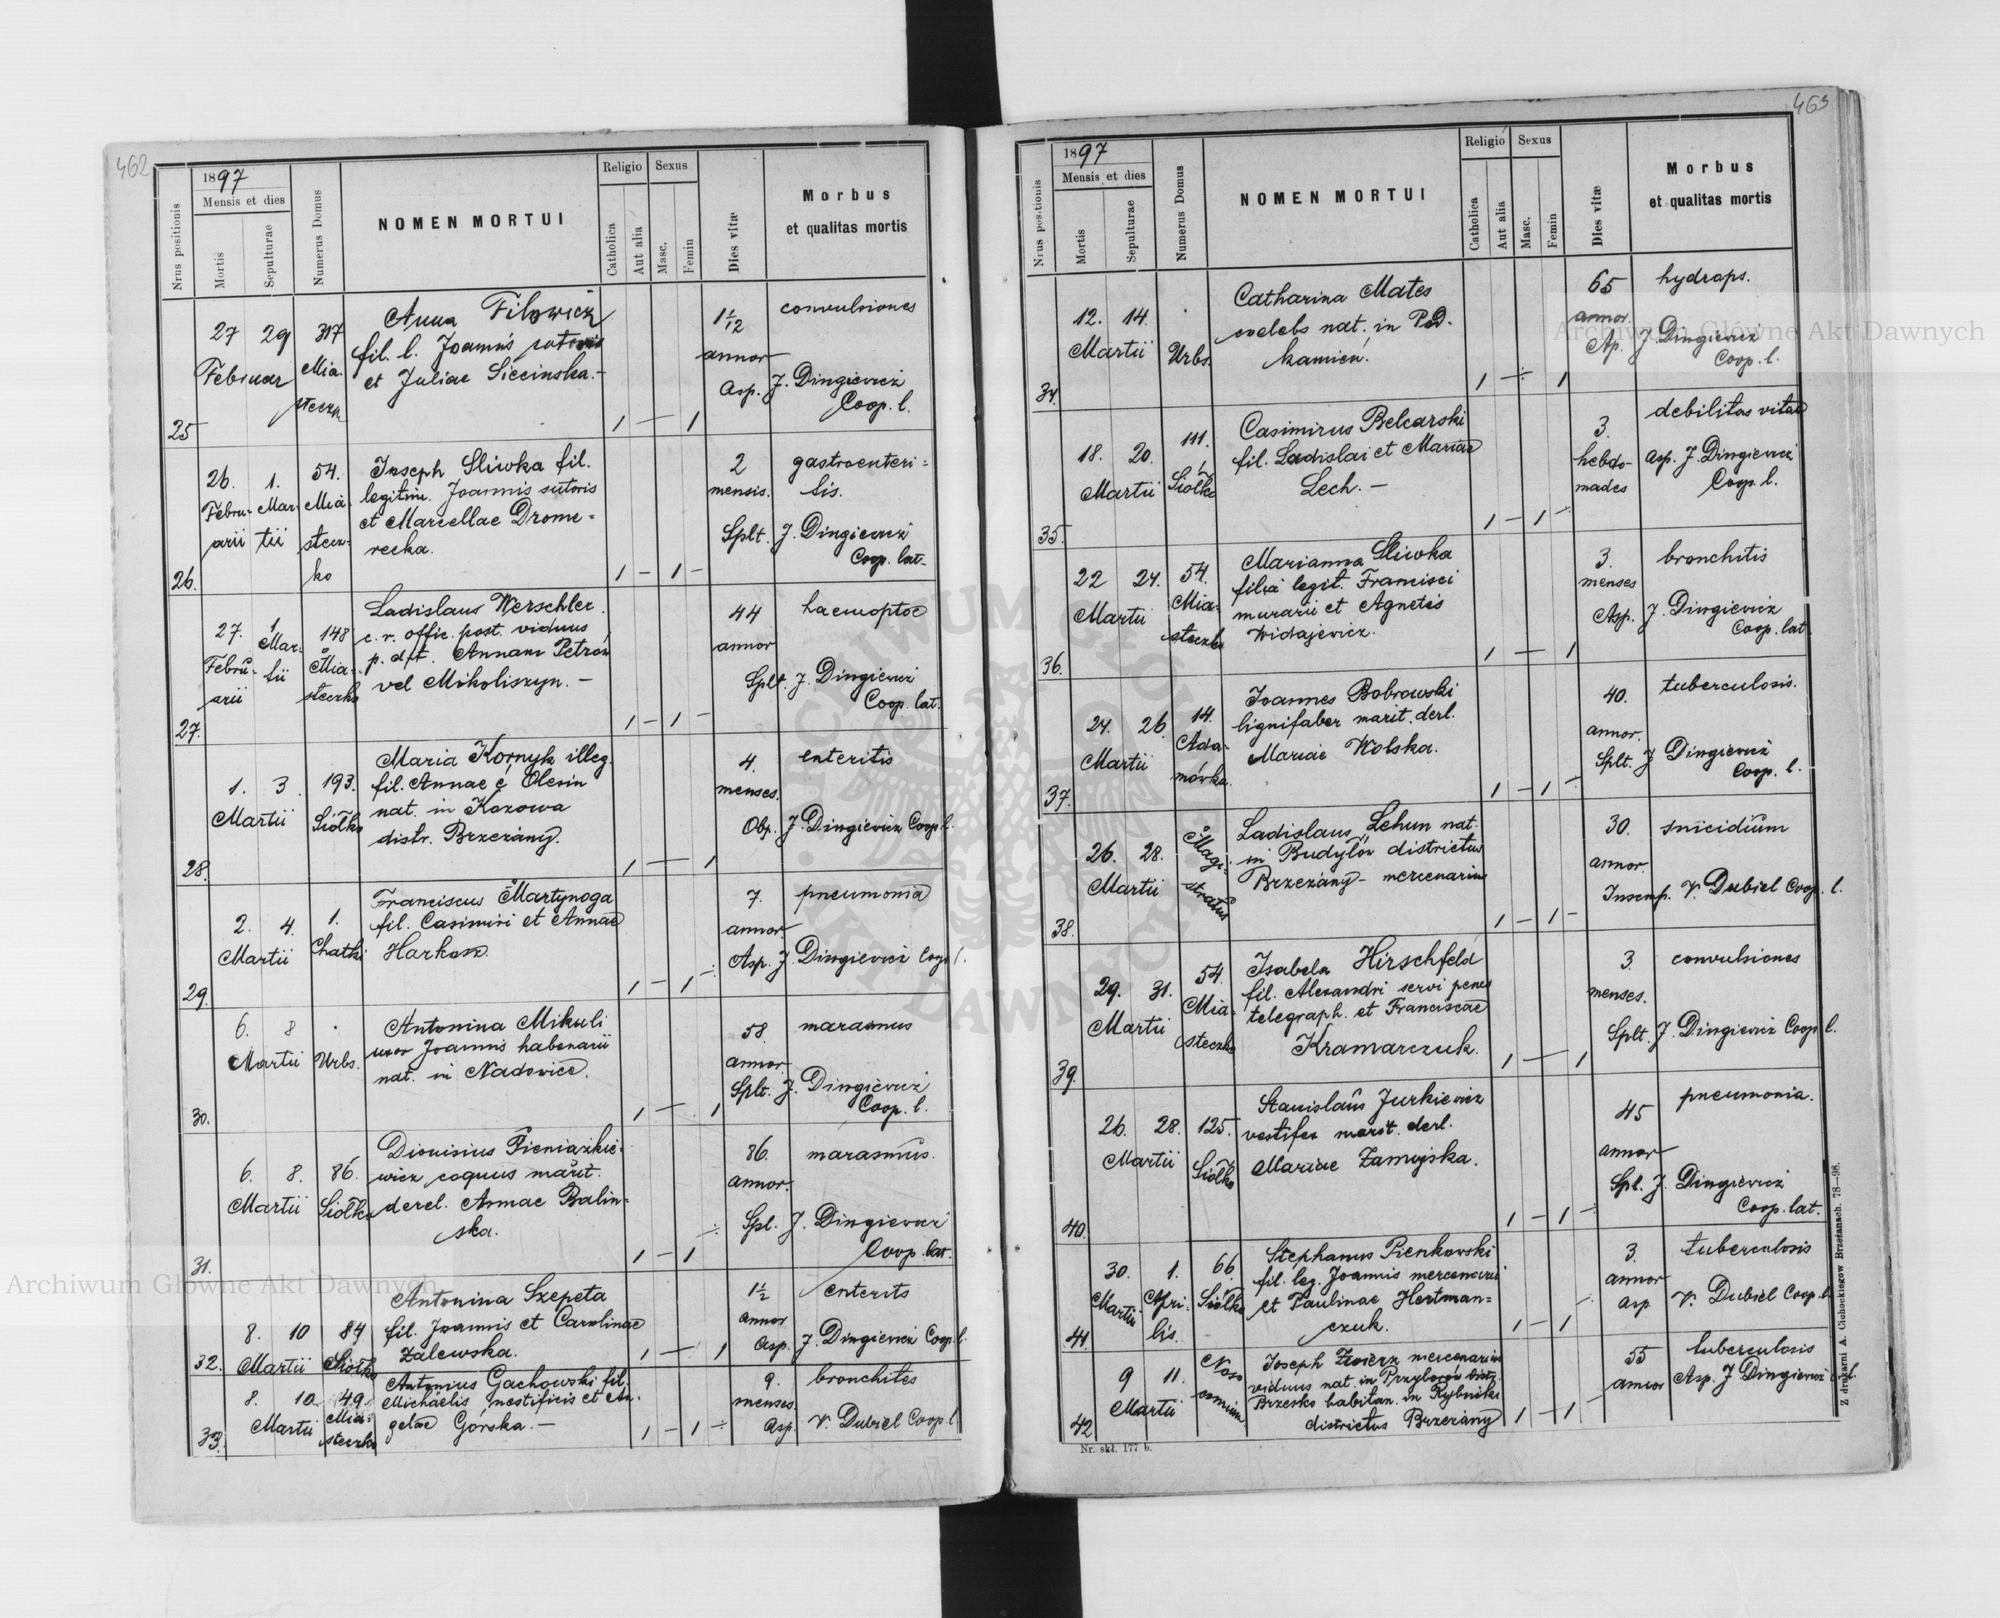 462
1897
Mensis et dies
Nrus positionis
Mortis
Sepulturae
Numerus Domus
NOMEN MORTUI
Religio
Catholica
Aut alia
Sexus
Masc.
Femin
Dies vitæ
Morbus
et qualitas mortis
25
27 29 317
Februar Mia-
steczk
Anna Filowicz
fil. l. Joannis sutoris
et Juliae Siecinska.-
1 — 1
1 1/12
annor
Asp.
convulsiones
J. Dingiewicz
Coop. l.
26.
26. 1. 54.
Febru- Mar- Mia-
arii tii stecz-
ko
Joseph Sliwka fil.
legitim. Joannis sutoris
et Marcellae Drome-
recka.
1 - 1 -
2
mensis.
Splt.
gastroenteri-
tis.
J. Dingiewicz
Coop. lat.
27.
27. 1 148
Febru- Mar- Mia-
arii tii steczko
Ladislaus Werschler
c. r. offic. post. viduus
p. dft. Annam Petron
vel Mikoliszyn. -
1 - 1 -
44
annor
Splt.
haemoptoe
J. Dingiewicz
Coop. lat.
28.
1. 3. 193.
Martii Siółko
Maria Kornyk illeg.
fil. Annae é Olesin
nat. in Kozowa
distr. Brzeżany.
1 — 1
4.
menses.
Obp.
enteritis
J. Dingiewicz Coop. l.
29.
2. 4. 1.
Martii Chatki
Franciscus Martynoga
fil. Casimiri et Annae
Harkosz.
1 - 1 ÷
7.
annor
Asp.
pneumonia
J. Dingiewicz Coop. l.
30.
6. 8 .
Martii Urbs.
Antonina Mikuli
uxor Joannis habenarii
nat. in Nadowice.
1 — 1
58.
annor.
Splt.
marasmus
J. Dingiewicz
Coop. l.
31.
6. 8. 86.
Martii Siółko
Dionisius Pieniążkie-
wicz coquus marit.
derel. Annae Balin-
ska.
1 - 1 ÷
86.
annor.
Spl.
marasmus.
J. Dingiewicz
Coop. lat.
32.
8. 10 84
Martii Siółko
Antonina Szepeta
fil. Joannis et Carolinae
Zalewska.
1 — 1
1 1/2
annor
Asp.
enterits
J. Dingiewicz Coop. l.
33.
8. 10 49
Martii Mia-
steczko
Antonius Gachowski fil.
Michaelis et An-
gelae Górska. -
1 - 1 ÷
9.
menses.
Asp.
bronchites
V. Dubiel Coop. l.
463
1897
Mensis et dies
Nrus positionis
Mortis
Sepulturae
Numerus Domus
NOMEN MORTUI
Religio
Catholica
Aut alia
Sexus
Masc.
Femin
Dies vitæ
Morbus
et qualitas mortis
34.
12. 14. .
Martii Urbs.
Catharina Mates
coelebs nat. in Pod-
kamien.
1 ÷ 1
65
annor.
Ap.
hydrops.
J. Dingiewicz
Coop. l.
35.
18. 20. 111.
Martii Siółko
Casimirus Belcarski
fil. Ladislai et Mariae
Lech. -
1 - 1 -
3.
hebdo-
mades
debilitas vitae
Asp. J. Dingiewicz
Coop. l.
36.
22 24. 54.
Martii Mia-
steczko
Marianna Sliwka
filia legit. Francisci
murarii et Agnetis
Widajewicz.
1 — 1
3.
menses
Asp.
bronchitis
J. Dingiewicz
Coop. lat
37.
24. 26. 14.
Martii Ada-
mówka
Joannes Bobrowski
lignifaber marit. derl.
Mariae Wolska.
1 - 1 ÷
40.
annor.
Splt.
tuberculosis.
J. Dingiewicz
Coop. l.
38.
26. 28. Magi-
Martii stratus
Ladislaus Lehun nat.
in Budylów districtus
Brzeżany - mercenarius
1 - 1 -
30.
annor.
Insemp.
suicidium
V. Dubiel Coop. l.
39.
29. 31. 54
Martii Mia-
steczko
Isabela Hirschfeld
fil. Alexandri servi penes
telegraph. et Franciscae
Kramarczuk.
1 — 1
3.
menses.
Splt.
convulsiones
J. Dingiewicz Coop l.
40.
26. 28. 125.
Martii Siółko
Stanislaus Jurkiewicz
vestifex marit. derl.
Mariae Zamojska.
1 - 1 ÷
45
annor
Spl.
pneumonia.
J. Dingiewicz
Coop. lat.
41.
30. 1. 66.
Martii Apri- Siółko
lis.
Stephanus Pienkowski
fil. leg. Joannis mercenarii
et Paulinae Hertman=
czuk.
1 - 1 ÷
3.
annor
Asp
tuberculosis
V. Dubiel Coop. l.
42
9 11. Noso
Martii comium
Joseph mercenarius
viduus nat. in Przyborów distr.
Brzesko habitan. in Rybniki
districtus Brzeżany
1 - 1 -
55
annor
tuberculosis
Asp. J Dingiewicz
Nr. skł. 177 b.
Z drukarni A. Cichockiegow Brzeżanach. 78—98.
Archiwum Główne Akt Dawnych
Archiwum Główne Akt Dawnych
ARCHIWUM GŁÓWNE AKT DAWNYCH